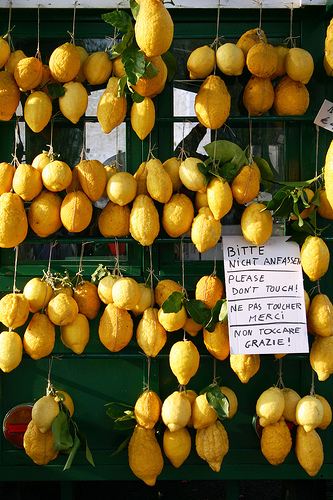 BiTTE
NiCHT ANFASSEN
PLEASE
DON'T TOUCH!
NE PAS TOUCHER
MERCi
NON TOCCARE
GRAZIE!